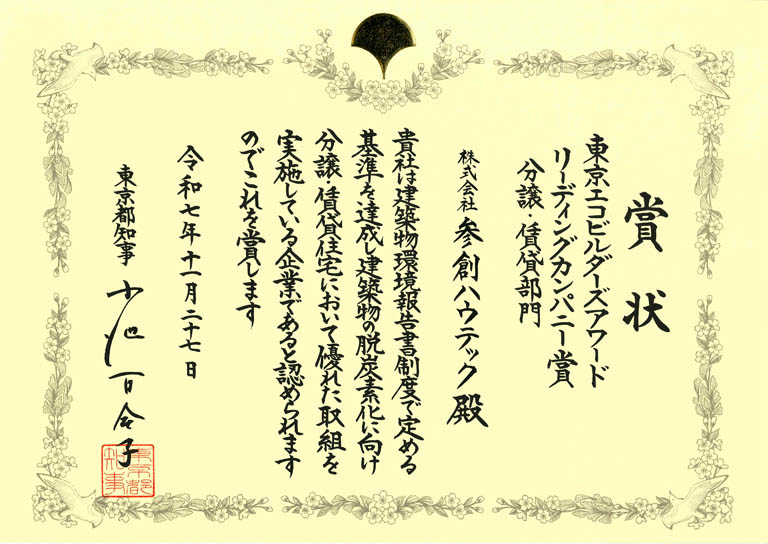 賞状
東京エコビルダーズアワード
リーディングカンパニー賞
分譲・賃貸部門
株式会社 参創ハウテック 殿
貴社は建築物環境報告書制度で定める
基準を達成し建築物の脱炭素化に向け
分譲・賃貸住宅において優れた取組を
実施している企業であると認められます
のでこれを賞します
令和七年十一月二十七日
東京都知事 小池百合子
東京都
知事